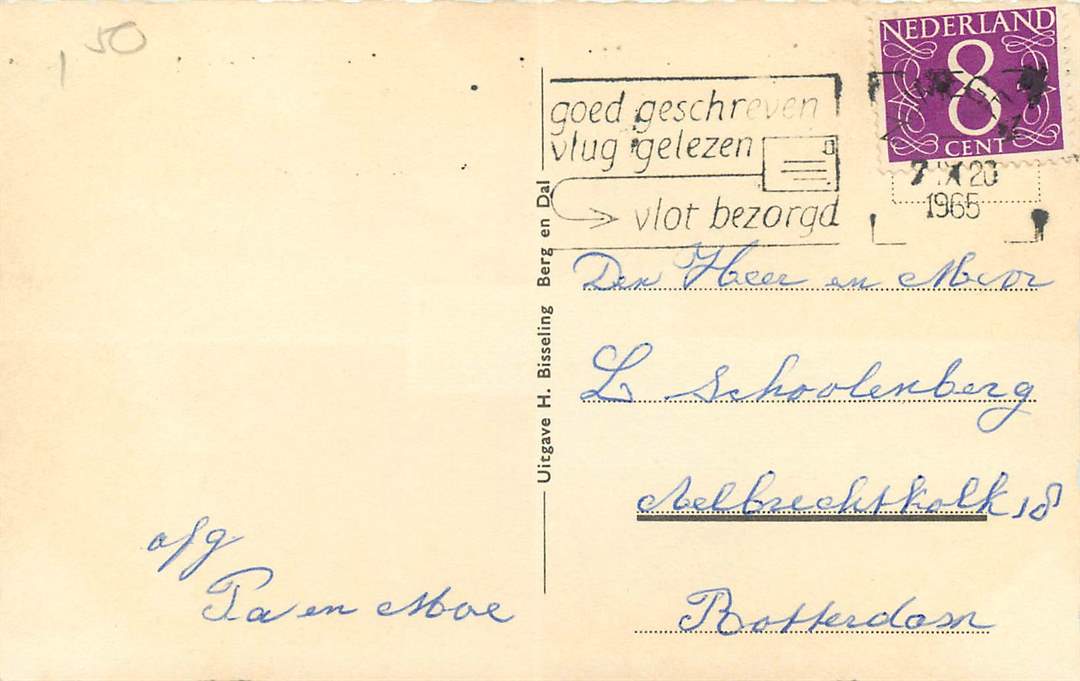 1 50
NEDERLAND
8
CENT
goed geschreven
vlug gelezen
vlot bezorgd
7 IX 20
1965
Uitgave H. Bisseling Berg en Dal
Den Heer en Mevr
L Schoolenberg
Aelbrechtskolk 18
Rotterdam
afz
Pa en Moe